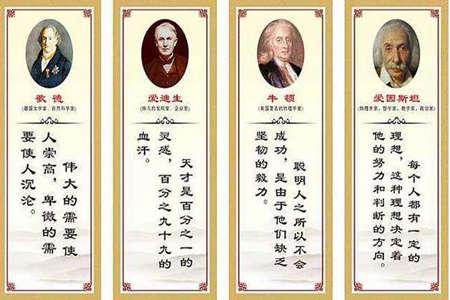 歌 德
(德国文学家、自然科学家)
伟大的需要使
人崇高，卑微的需
要使人沉沦。
爱迪生
(伟大的发明家、企业家)
天才是百分之一的
灵感，百分之九十九的
血汗。
牛 顿
(英国著名的物理学家)
聪明人之所以不会
成功，是由于他们缺乏
坚韧的毅力。
爱因斯坦
每个人都有一定的
理想，这种理想决定着
他的努力和判断的方向。